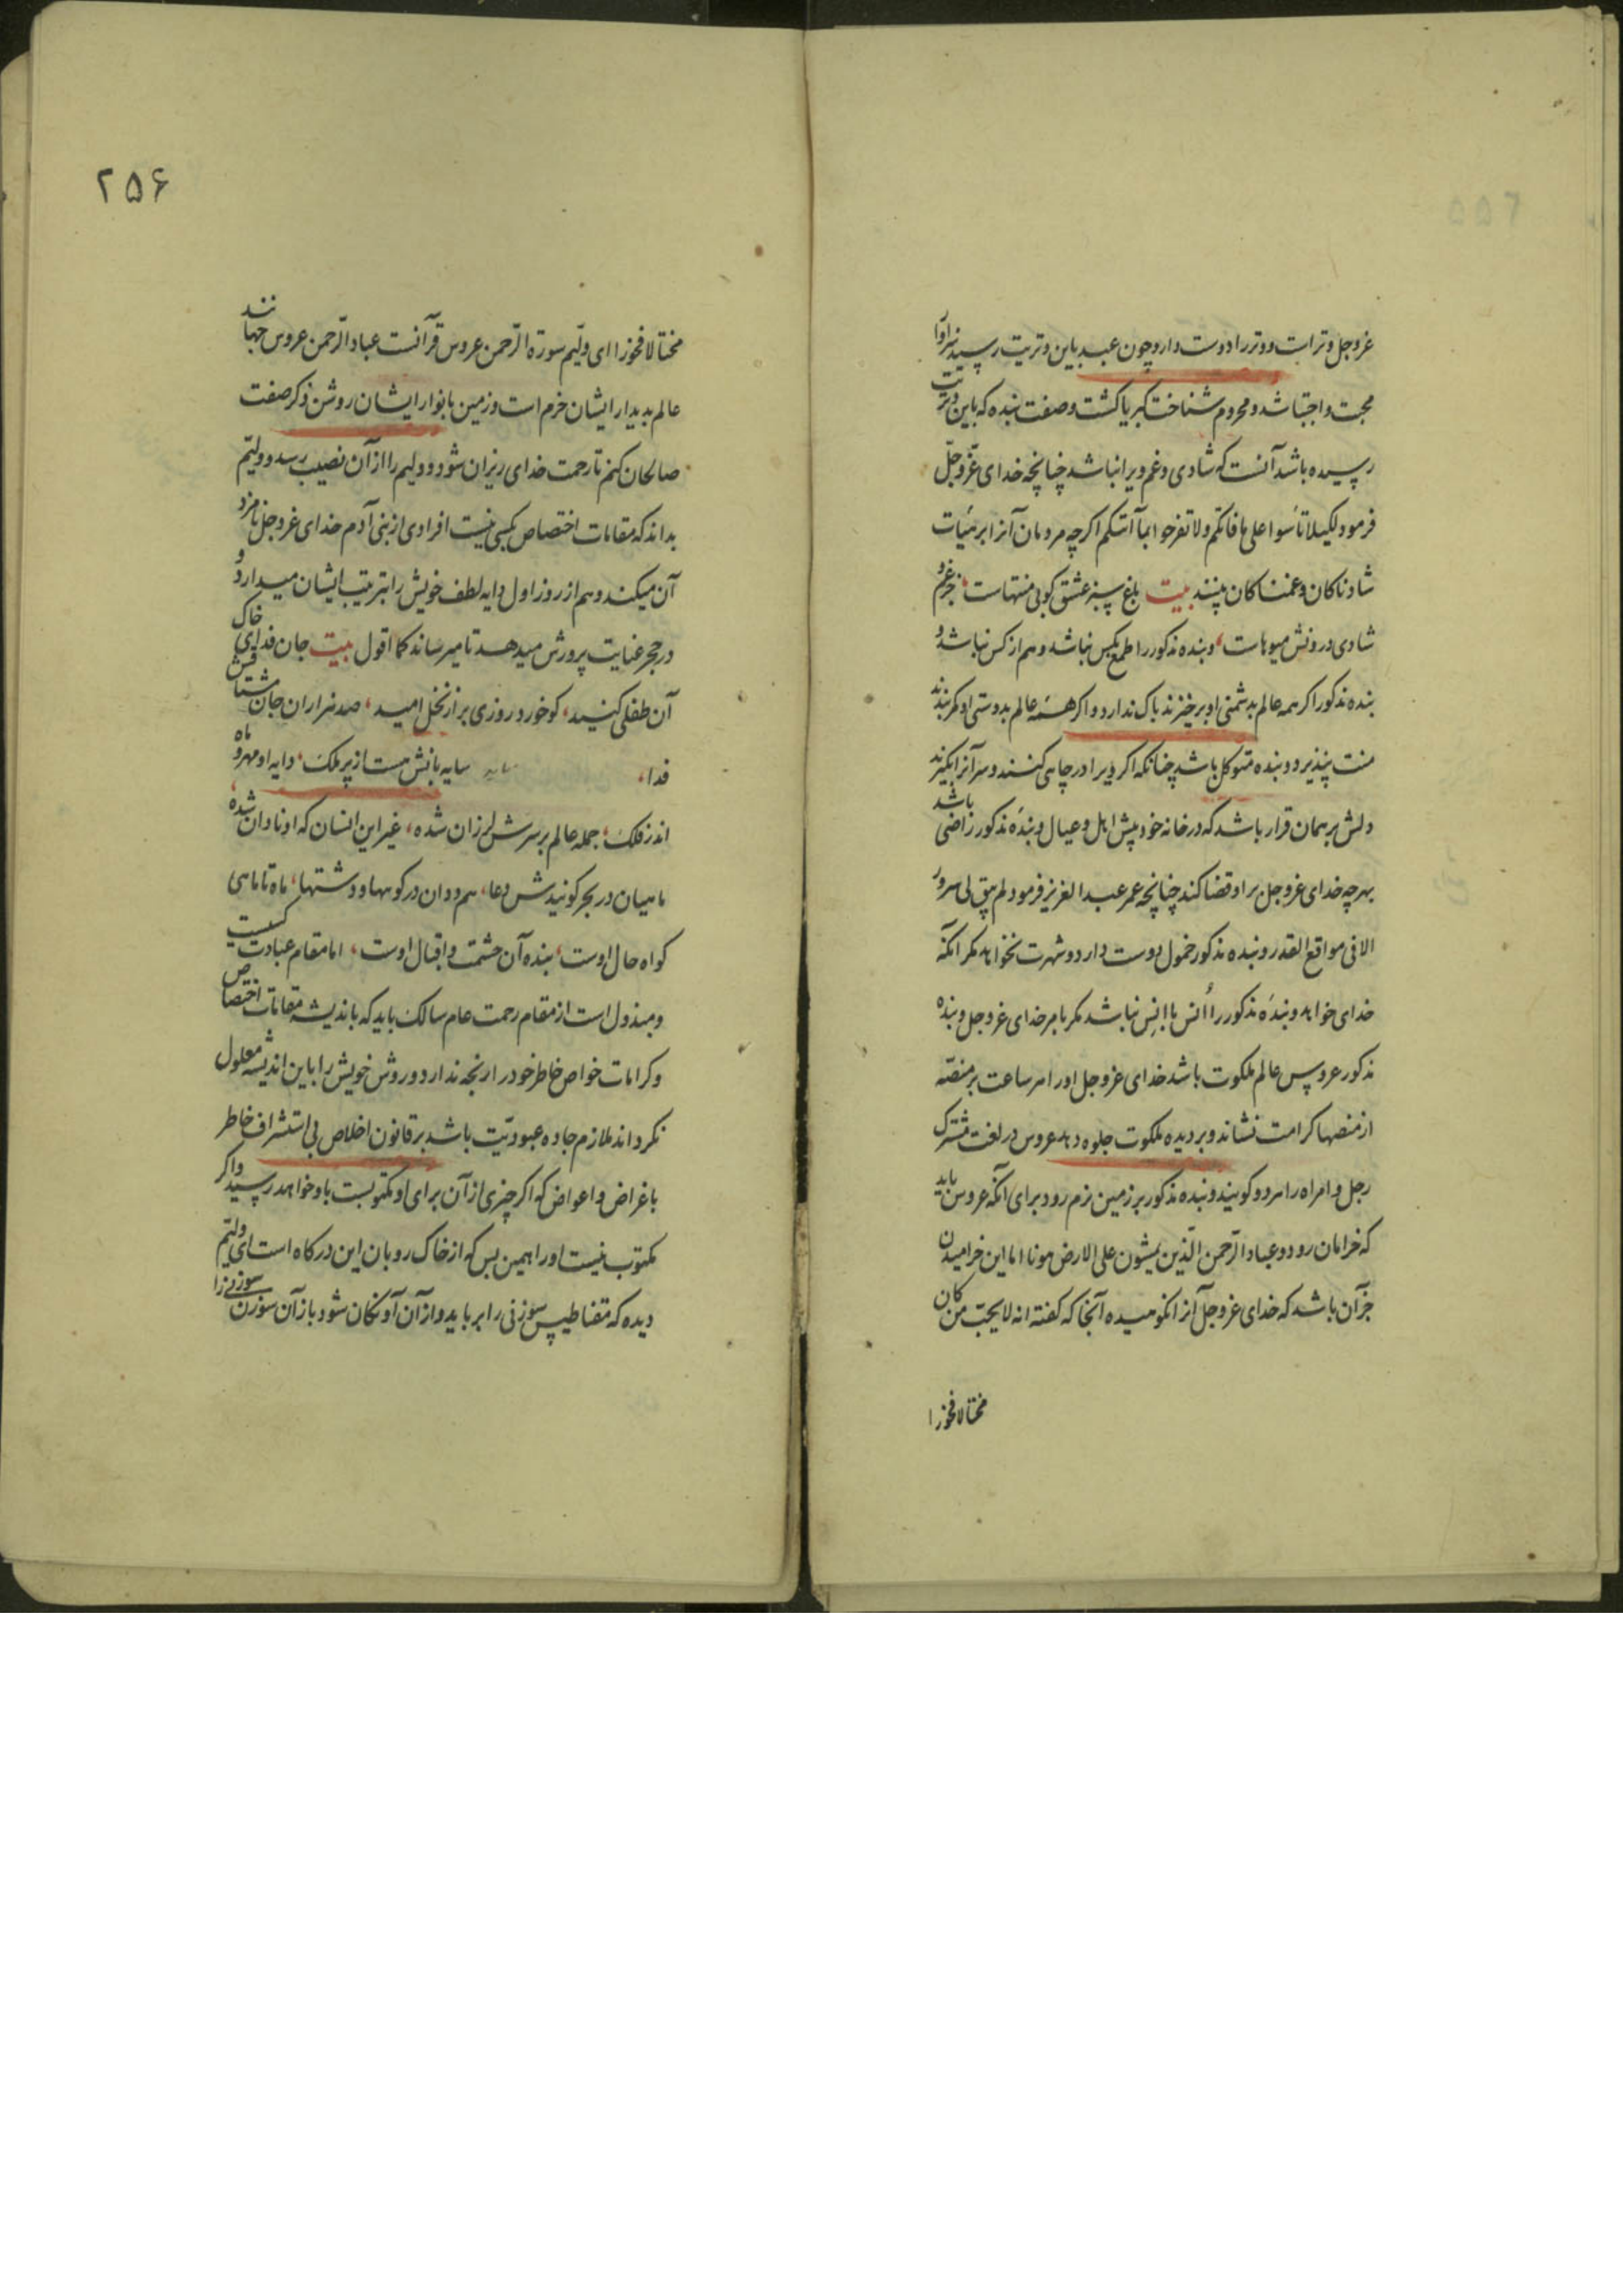 عزوجل وتر است و وتر را دوست دارد و چون عبد باین وتریت رسید سزاوار
محبت و اجتبا شد و محروم شناخت کبریا کشت و صفت بنده که باین وتریت
رسیده باشد آنست که شادی و غم ویرا نباشد چنانچه خدای عزّوجلّ
فرمود لکیلا تأسوا علی ما فاتکم و لا تفرحوا بمآ آتیکم اکرچه مردمان آنرا بر هیٔات
شادناکان و غمناکان بینند بیت باغ سبز عشق کو بی منتهاست، جز غم و
شادی درونش میوهاست، و بنده مذکور را طمع بکس نباشد و هم از کس نباشد و
بنده مذکور اکر همه عالم بدشمنی او برخیزند باک ندارد و اکر همه عالم بدوستی او کمر بندند
منت نپذیرد و بنده متوکل باشد چنانکه اکر ویرا در چاهی کنند و سر آنرا بگیرند
دلش بر همان قرار باشد که در خانه خود پیش اهل و عیال و بنده مذکور راضی باشد
بهرچه خدای عزوجل بر او قضا کند چنانچه عمر عبد العزیز فرمود لم یبق لی سرور
الا فی مواقع القدر و بنده مذکور خمول دوست دارد و شهرت نخواهد مکر آنکه
خدای خواهد و بندهٔ مذکور را اُنس با اِنس نباشد مکر بامر خدای عزوجل و بنده
مذکور عروس عالم ملکوت باشد خدای عزوجل او را هر ساعت بر منصّه
از منصهاء کرامت نشاند و بر دیده ملکوت جلوه دهد عروس در لغت مشترک
رجل و امراه را هر دو کویند و بنده مذکور بر زمین نرم رود برای آنکه عروس باید
که خرامان رود و عباد الرّحمن الّذین یمشون علی الارض هونا اما این خرامیدن
جز آن باشد که خدای عزوجل آنرا نکوهیده آنجا که کفته انه لا یحبّ من کان
مختالا فخورا
۲۵۶
مختالا فخورا ای ولیّم سورة الرّحمن عروس قرآنست عباد الرّحمن عروس جهانند
عالم بدیدار ایشان خرم است و زمین بانوار ایشان روشن ذکر صفت
صالحان کنم تا رحمت خدای ریزان شود و ولیم را از آن نصیب رسد و ولیّم
بداند که مقامات اختصاص بکسبی نیست افرادی از بنی آدم خدای عزوجل نامزد
آن میکند و هم از روز اول دایه لطف خویش را بتربیت ایشان میدارد و
در حجر عنایت پرورش میدهد تا میرساند کما اقول بیت جان فدای خاک
آن طفلی کنید، کو خورد روزی بر از نخل امید، صد هزاران جان مشتاقش
فدا، سایه بانش هست از پر ملک، دایه او مهر و ماه
اندر فلک، جمله عالم بر سرش لرزان شده، غیر این انسان که او نادان شده،
ماهیان در بحر کویندش دعا، هم ددان در کوهها و دشتها، ماه تا ماهی
کواه حال اوست، بنده آن حشمت و اقبال اوست، اما مقام عبادت کسبیست
و مبذول است از مقام رحمت عام سالک باید که باندیشه مقامات اختصاص
و کرامات خواص خاطر خود را رنجه ندارد و روش خویش را باین اندیشه معلول
نکرداند ملازم جاده عبودیّت باشد بر قانون اخلاص بی استشراف خاطر
باغراض و اعواض که اکر چیزی از آن برای او مکتوبست باو خواهد رسید و اکر
مکتوب نیست او را همین بس که از خاک روبان این درکاه است ای ولیّم
دیده که مقناطیس سوزنی را برباید و از آن آونکان شود باز آن سوزن سوزنی را